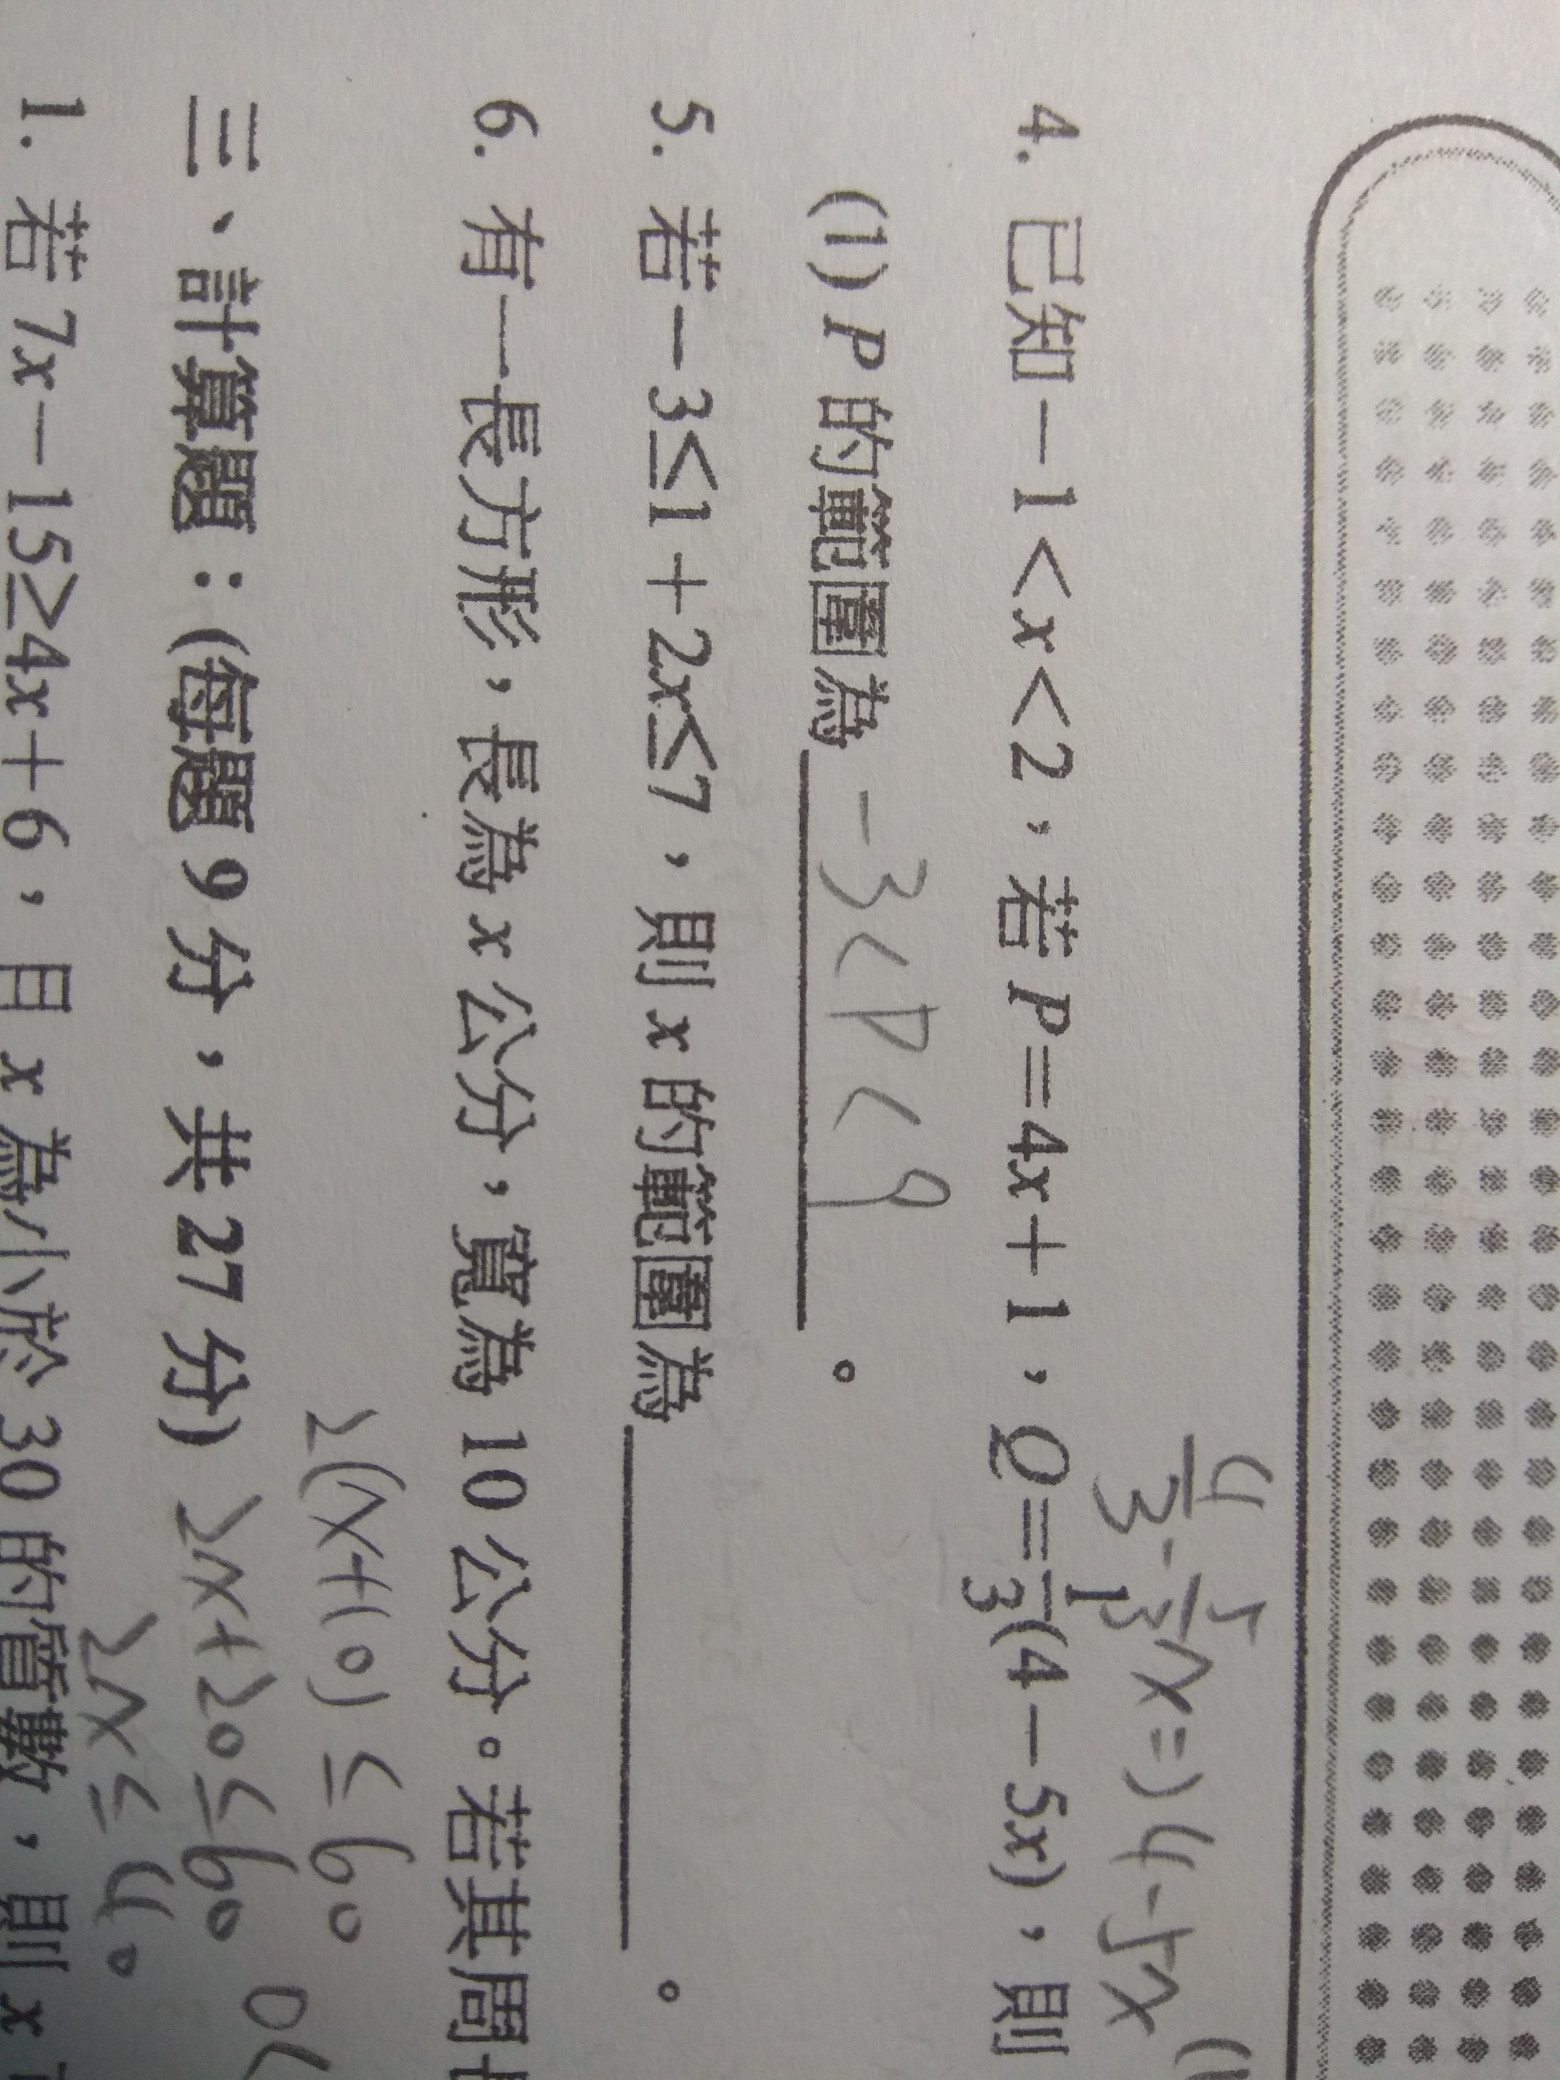 4/3-5/3x=)4-5x
4. 已知-1<x<2,若P=4x+1,Q=1/3(4-5x),則
(1) P 的範圍為 -3<P<9 。
5. 若-3≤1+2x≤7,則 x 的範圍為＿＿＿。
6. 有一長方形,長為 x 公分,寬為 10 公分。若其周
2(x+10)≤60
三、計算題:(每題 9 分,共 27 分)
2x+20≤60
2x≤40
1. 若 7x-15≥4x+6,且 x 為小於 30 的質數,則 x